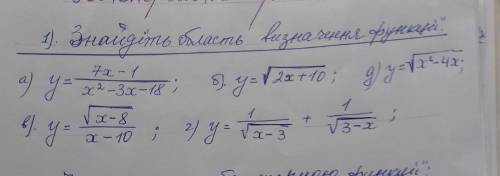 1). Знайдіть область визначення функції:
а) y = \frac{7x-1}{x^2-3x-18}; б). y = \sqrt{2x+10}; д) y = \sqrt{x^2-4x};
в). y = \frac{\sqrt{x-8}}{x-10}; г) y = \frac{1}{\sqrt{x-3}} + \frac{1}{\sqrt{3-x}};